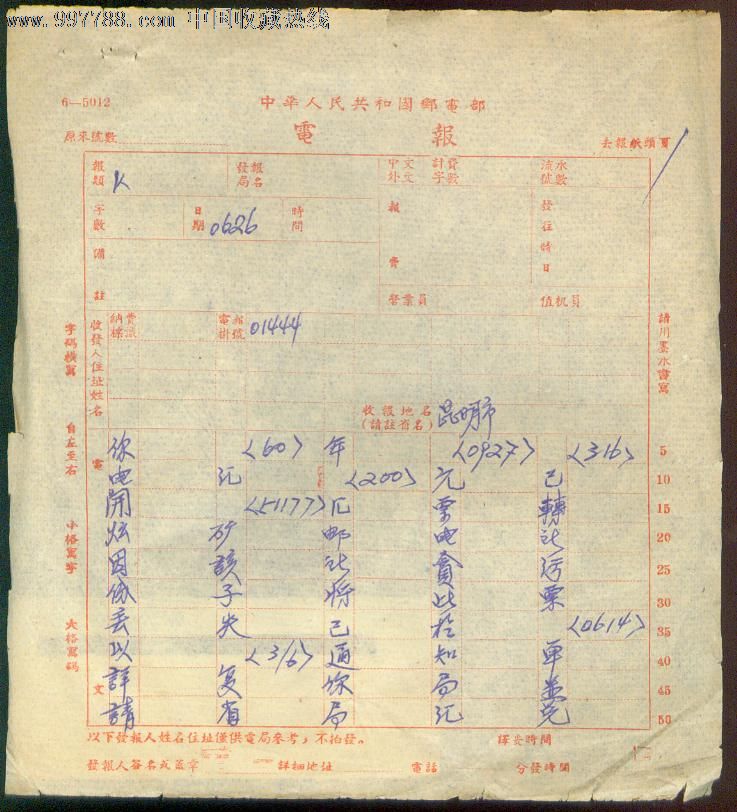 www.997788.com 中国收藏热线
6—5012
中華人民共和國郵電部
電 報
原來號數
去報紙頭頁
報類 K
發報局名
中文 外文
計費字數
流水號數
字數
日期 0626
時間
報費
發往時日
備註
營業員
值机員
納費標識
電報掛號 01444
收發人住址姓名
收報地名(請註省名) 昆明市
字碼橫寫
自左至右
小格寫字
大格寫碼
請用墨水書寫
電文
你 〈60〉 年 〈0927〉 〈316〉 5
电 汇 〈200〉 元 已 10
開 〈51177〉 汇 票 轉 15
砂 邮 电 20
因 該 汇 25
子 將 比 票 30
丢 失 已 〈0614〉 35
以 〈3/6〉 通 知 單 40
詳 复 你 局 並 45
請 省 局 汇 兑 50
以下發報人姓名住址僅供電局參考，不拍發。
譯妥時間
發報人簽名或蓋章
詳細地址
電話
分發時間